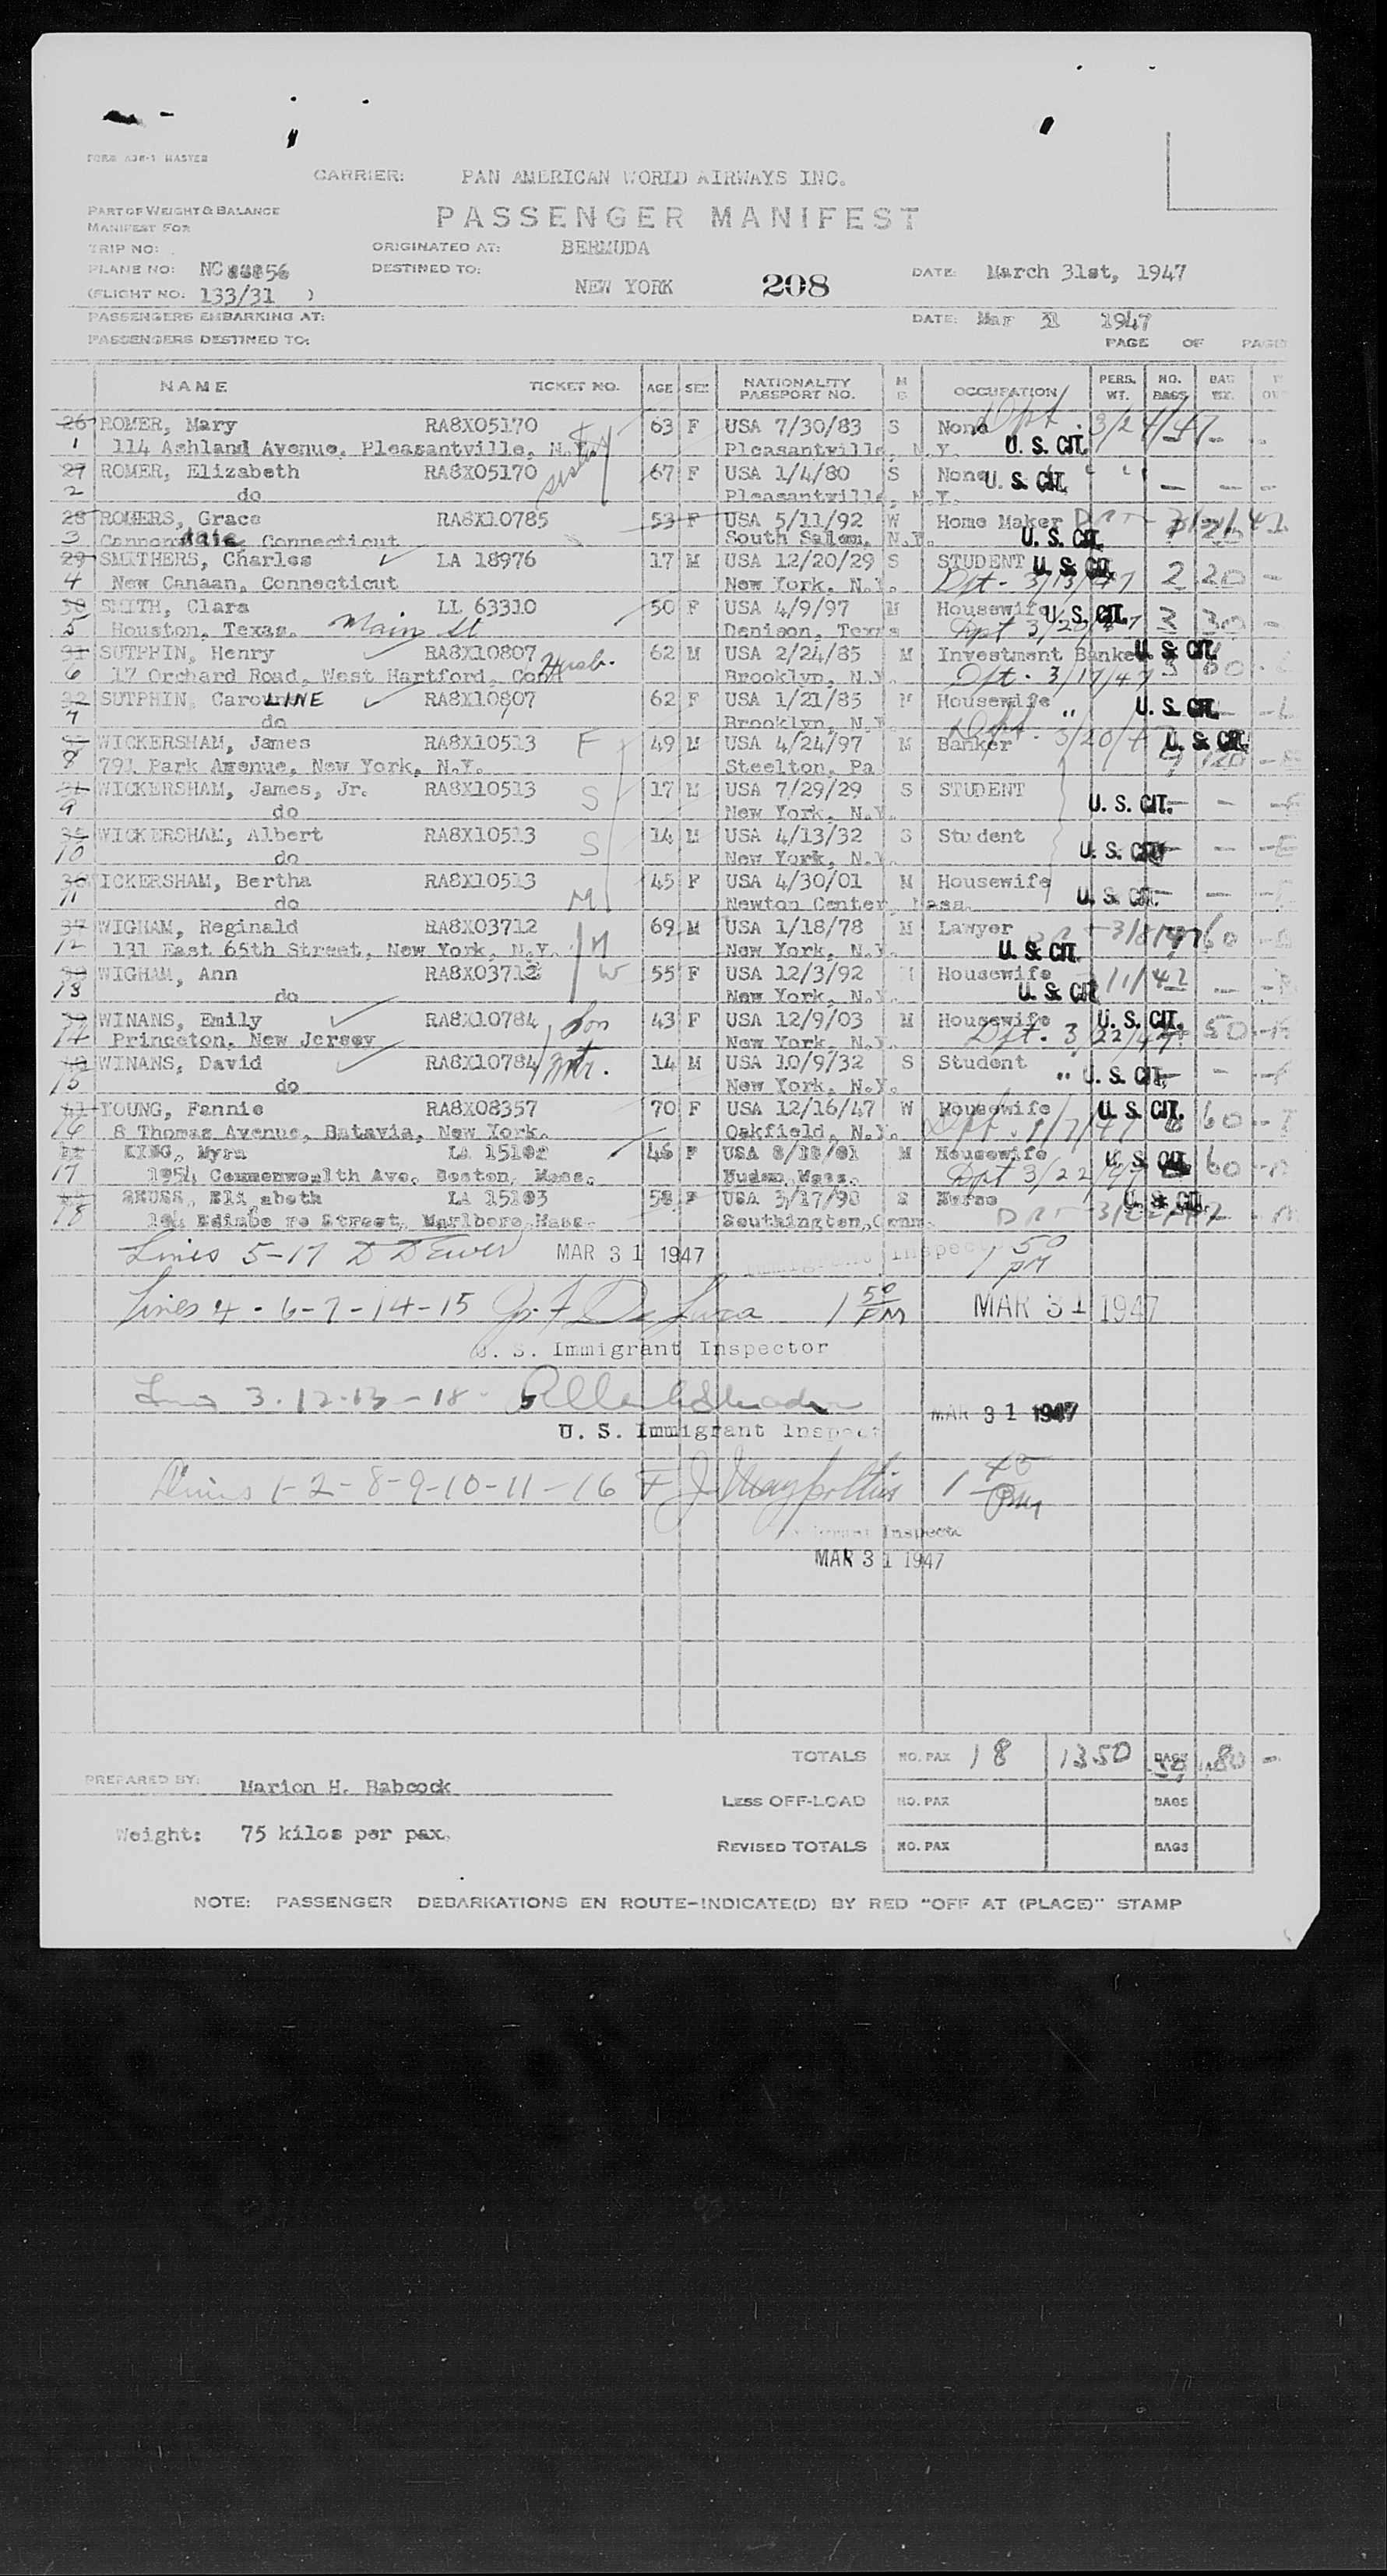 FORM A38-1 MASTER
CARRIER: PAN AMERICAN WORLD AIRWAYS INC.
PART OF WEIGHT & BALANCE
MANIFEST FOR
PASSENGER MANIFEST
TRIP NO:
ORIGINATED AT: BERMUDA
PLANE NO: NC88856
DESTINED TO: NEW YORK
208
DATE: March 31st, 1947
(FLIGHT NO: 133/31 )
PASSENGERS EMBARKING AT:
DATE: Mar 31 1947
PASSENGERS DESTINED TO:
PAGE OF PAGES
NAME TICKET NO. AGE SEX NATIONALITY PASSPORT NO. M S OCCUPATION PERS. WT. NO. BAGS BAG WT.
26 ROMER, Mary RA8X05170 63 F USA 7/30/83 S None Dpt. 3/24/47
1 114 Ashland Avenue, Pleasantville, N.Y. Pleasantville, N.Y. U. S. CIT.
27 ROMER, Elizabeth RA8X05170 sister 67 F USA 1/4/80 S None U. S. CIT. " "
2 do Pleasantville, N.Y.
28 ROMERS, Grace RA8X10785 53 F USA 5/11/92 W Home Maker
3 Cannondale, Connecticut South Salem, N.Y. U. S. CIT.
29 SMITHERS, Charles LA 18976 17 M USA 12/20/29 S STUDENT U. S. CIT. 2 20 -
4 New Canaan, Connecticut New York, N.Y. Dpt- 3/13/47
30 SMITH, Clara LL 63310 50 F USA 4/9/97 M Housewife U. S. CIT. 30 -
5 Houston, Texas. Main St Denison, Texas Dpt 3/20/47
31 SUTPHIN, Henry RA8X10807 62 M USA 2/24/85 M Investment Banker U. S. CIT.
6 17 Orchard Road, West Hartford, Conn Husb. Brooklyn, N.Y. Dpt. 3/17/47
32 SUTPHIN, CaroLINE RA8X10807 62 F USA 1/21/85 M Housewife " U. S. CIT.
7 do Brooklyn, N.Y.
33 WICKERSHAM, James RA8X10513 F 49 M USA 4/24/97 M Banker Dpt. 3/20/47 U. S. CIT.
8 791 Park Avenue, New York, N.Y. Steelton, Pa 120
34 WICKERSHAM, James, Jr. RA8X10513 S 17 M USA 7/29/29 S STUDENT
9 do New York, N.Y. U. S. CIT.
35 WICKERSHAM, Albert RA8X10513 S 14 M USA 4/13/32 S Student
10 do New York, N.Y. U. S. CIT.
36 ICKERSHAM, Bertha RA8X10513 45 F USA 4/30/01 M Housewife
11 do M Newton Center, Mass. U. S. CIT.
37 WIGHAM, Reginald RA8X03712 69 M USA 1/18/78 M Lawyer 60
12 131 East 65th Street, New York, N.Y. H New York, N.Y. U. S. CIT.
38 WIGHAM, Ann RA8X03712 W 55 F USA 12/3/92 M Housewife
13 do New York, N.Y. U. S. CIT
39 WINANS, Emily RA8X10784 Son 43 F USA 12/9/03 M Housewife U. S. CIT. 50
14 Princeton, New Jersey New York, N.Y. Dpt. 3/22/47
40 WINANS, David RA8X10784 Mtr. 14 M USA 10/9/32 S Student
15 do New York, N.Y. " U. S. CIT.
41 YOUNG, Fannie RA8X08357 70 F USA 12/16/47 W Housewife U. S. CIT. 60
16 8 Thomas Avenue, Batavia, New York. Oakfield, N.Y.
KING, Myra LA 15102 46 F USA 8/18/01 M Housewife U. S. CIT. 60
17 1954 Commonwealth Ave. Boston, Mass. Hudson, Mass. Dpt 3/22/47
LA 15103 58 F USA 3/17/90 S Nurse U. S. CIT.
18 Street, Marlboro, Mass. Southington, Conn.
Lines 5-17 MAR 31 1947 Immigrant Inspector 1 50 PM
Lines 4-6-7-14-15 1 50 PM MAR 31 1947
U. S. Immigrant Inspector
Lines 3-12-13-18 MAR 31 1947
U. S. Immigrant Inspect
Lines 1-2-8-9-10-11-16 1 40 PM
Immigrant Inspecto
MAR 31 1947
TOTALS NO. PAX 18 1350 BAGS
PREPARED BY: Marion H. Babcock
LESS OFF-LOAD NO. PAX BAGS
Weight: 75 kilos per pax.
REVISED TOTALS NO. PAX BAGS
NOTE: PASSENGER DEBARKATIONS EN ROUTE-INDICATE(D) BY RED "OFF AT (PLACE)" STAMP